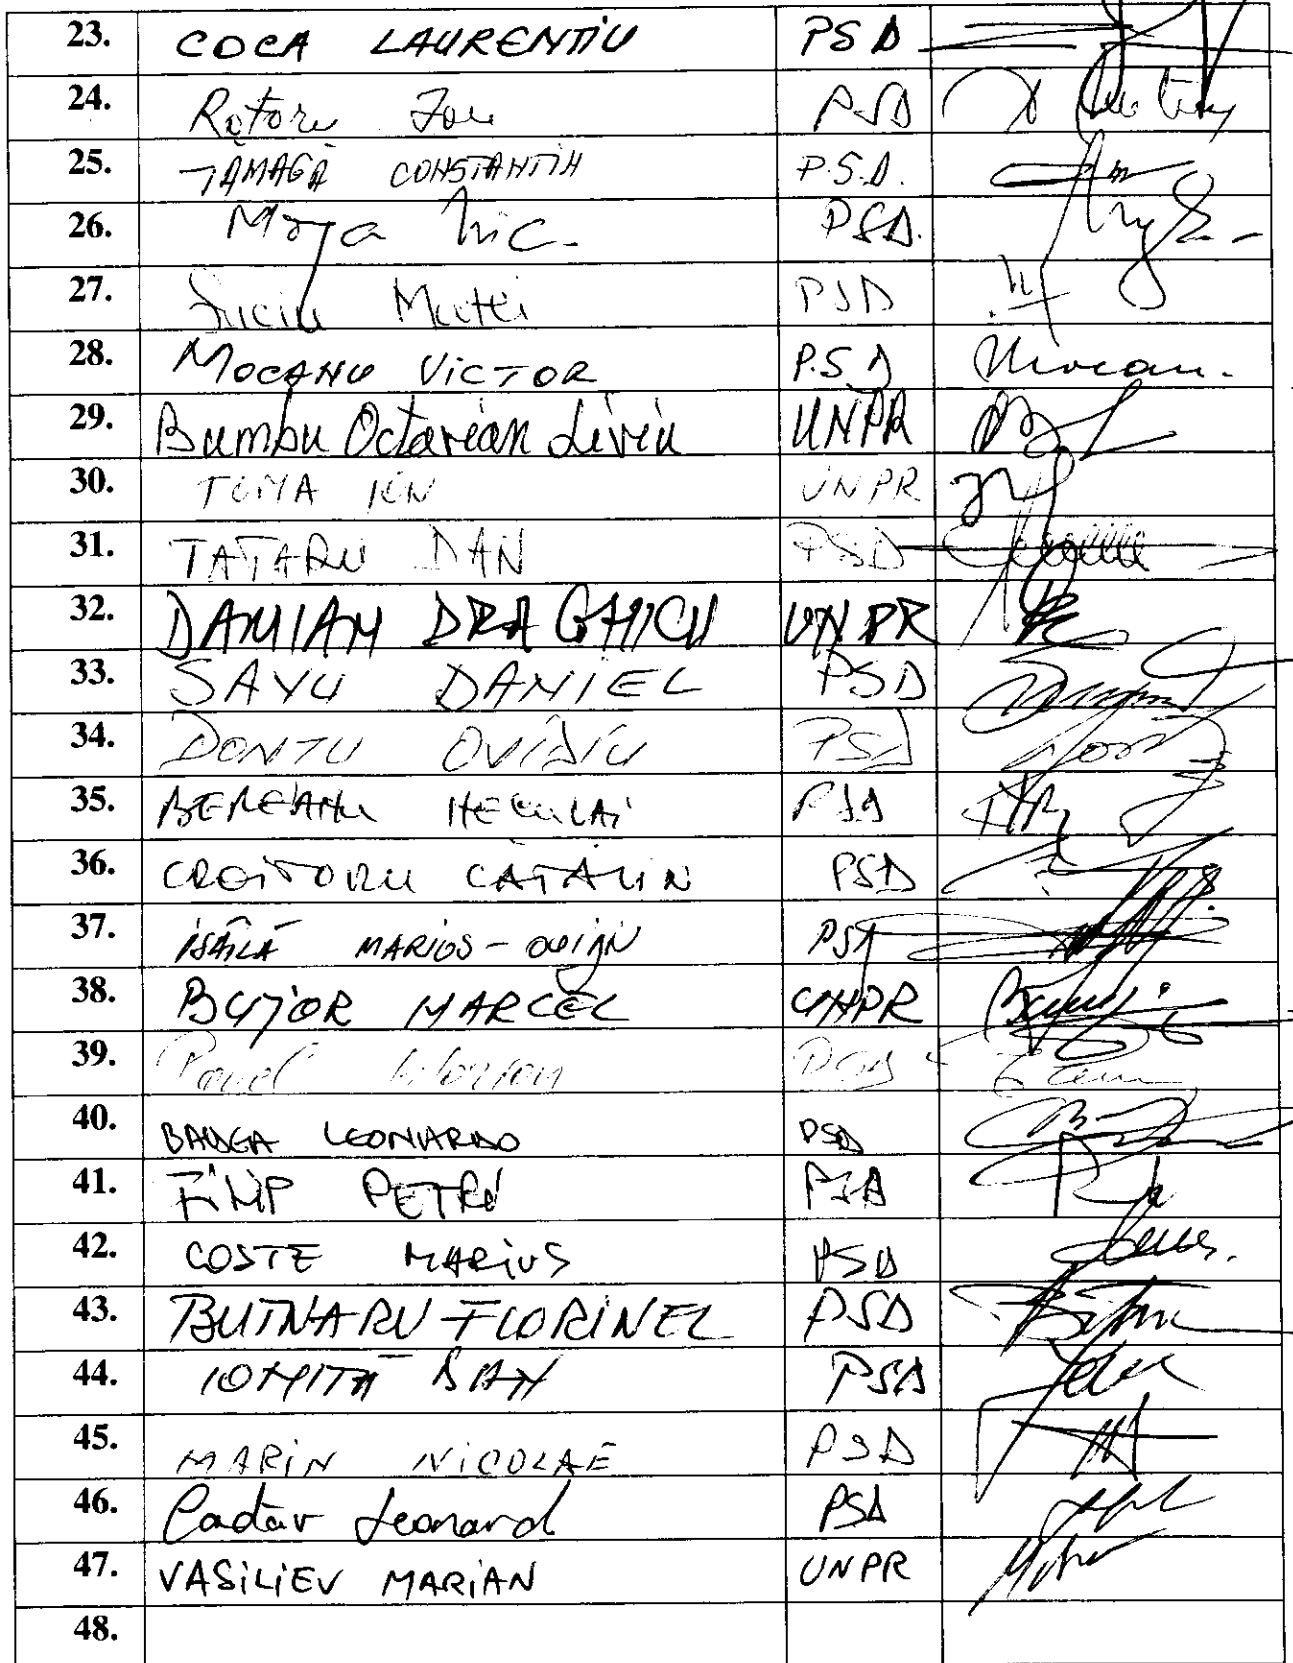 23. COCA LAURENTIU PSD
24. Rotaru Ion PSD
25. TĂMAGĂ CONSTANTIN P.S.D.
26. Moga Nic. PSD.
27. Suciu Matei PSD
28. MOCANU VICTOR P.S.D Mocanu.
29. Bumbu Octavian Liviu UNPR
30. TOMA ION UNPR
31. TATARU DAN PSD
32. DAMIAN DRAGHICI UNPR
33. SAVU DANIEL PSD
34. DONTU OVIDIU PSD
35. BEREANU NECULAI PSD
36. CROITORU CĂTĂLIN PSD
37. ISĂILĂ MARIUS-OVIDIU PSD
38. BUJOR MARCEL UNPR
39. Pavel Marian
40. BADEA LEONARDO PSD
41. FILIP PETRU PSD
42. COSTE MARIUS PSD
43. BUTNARU FLORINEL PSD
44. IONITĂ DAN PSD
45. MARIN NICOLAE PSD
46. Cadăr Leonard PSD
47. VASILIEV MARIAN UNPR
48.